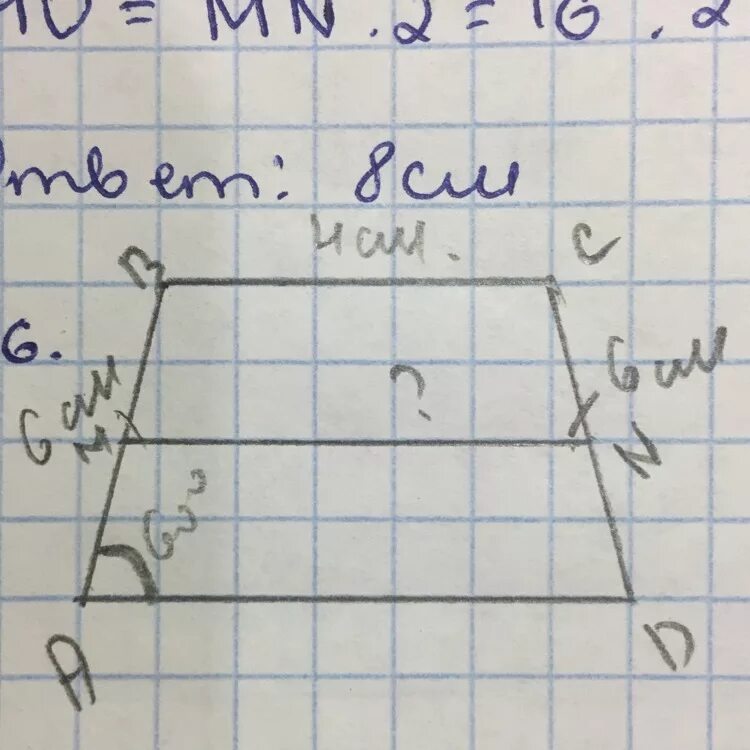 = MN . 2 = 16 . 2
Ответ: 8 см
B 4 см. C
6.
6 см ? 6 см
M N
60°
A D